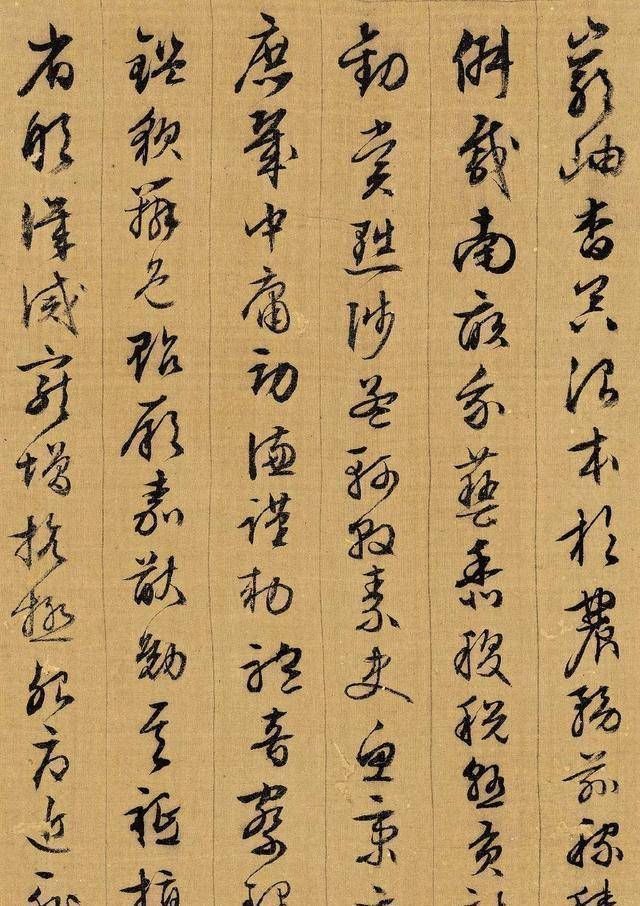 巖岫杳冥治本於農務茲稼穡
俶載南畝我藝黍稷稅熟貢新
勸賞黜陟孟軻敦素史魚秉直
庶幾中庸勞謙謹敕聆音察理
鑑貌辨色貽厥嘉猷勉其祗植
省躬譏誡寵增抗極殆辱近恥